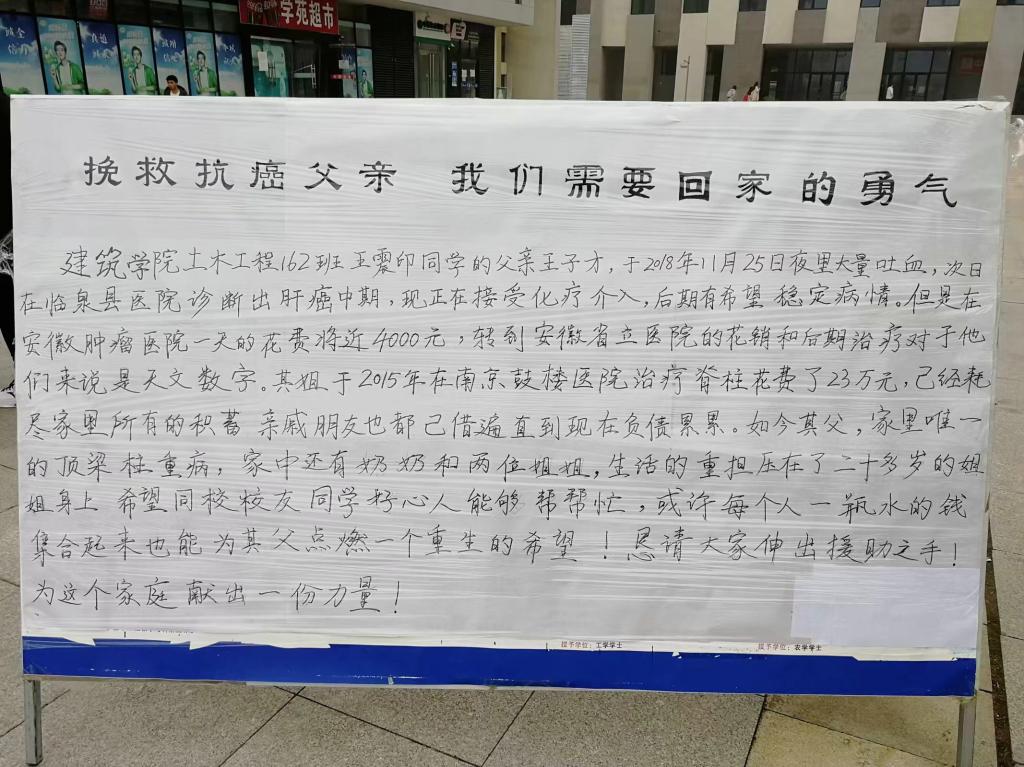 学苑超市
挽救抗癌父亲 我们需要回家的勇气
建筑学院土木工程162班王震印同学的父亲王子才，于2018年11月25日夜里大量吐血，次日
在临泉县医院诊断出肝癌中期，现正在接受化疗介入，后期有希望稳定病情。但是在
安徽肿瘤医院一天的花费将近4000元，转到安徽省立医院的花销和后期治疗对于他
们来说是天文数字。其姐于2015年在南京鼓楼医院治疗脊柱花费了23万元，已经耗
尽家里所有的积蓄 亲戚朋友也都已借遍直到现在负债累累。如今其父，家里唯一
的顶梁柱重病，家中还有奶奶和两位姐姐，生活的重担压在了二十多岁的姐
姐身上 希望同校校友同学好心人能够帮帮忙，或许每个人一瓶水的钱
集合起来也能为其父点燃一个重生的希望！恳请大家伸出援助之手！
为这个家庭献出一份力量！
授予学位：工学学士 授予学位：农学学士